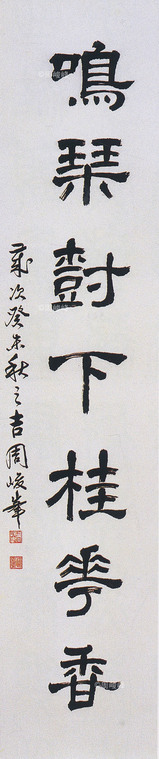 鳴琴樹下桂花香
歲次癸未秋之吉周峻峰